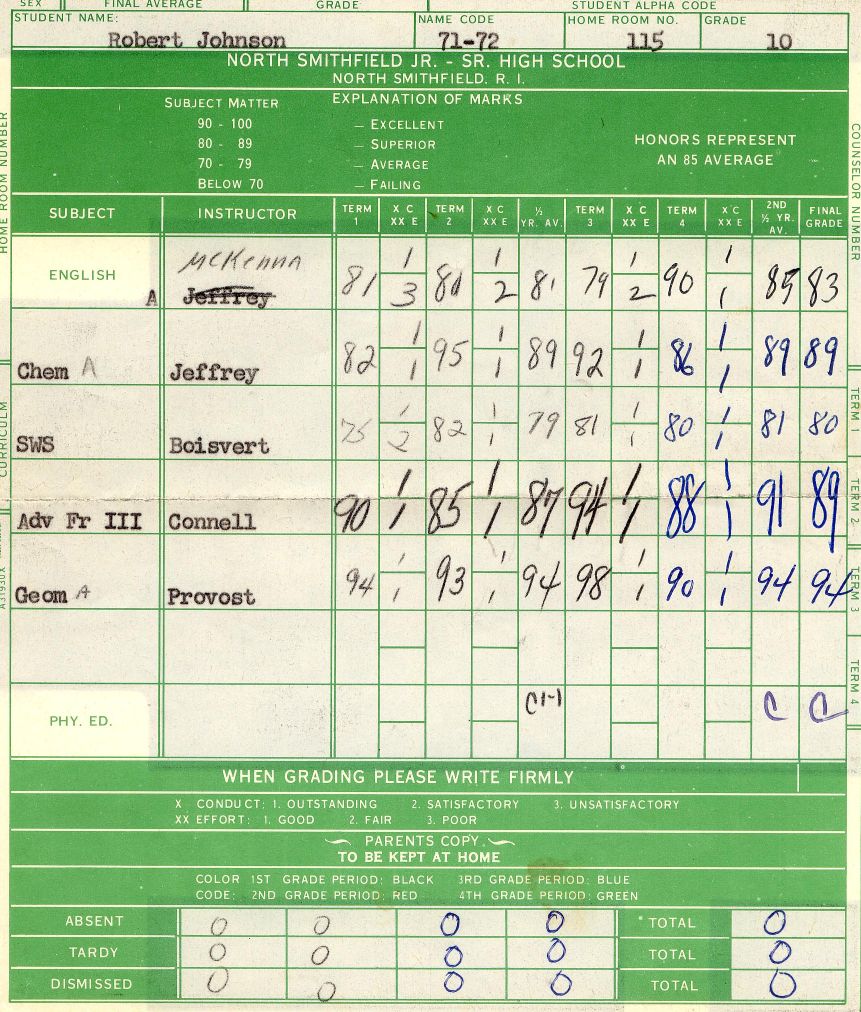 SEX FINAL AVERAGE GRADE STUDENT ALPHA CODE
STUDENT NAME: NAME CODE HOME ROOM NO. GRADE
Robert Johnson 71-72 115 10
NORTH SMITHFIELD JR. - SR. HIGH SCHOOL
NORTH SMITHFIELD. R. I.
SUBJECT MATTER EXPLANATION OF MARKS
90 - 100 — EXCELLENT
80 - 89 — SUPERIOR
70 - 79 — AVERAGE
BELOW 70 — FAILING
HONORS REPRESENT
AN 85 AVERAGE
HOME ROOM NUMBER
COUNSELOR NUMBER
SUBJECT INSTRUCTOR TERM 1 X C XX E TERM 2 X C XX E ½ YR. AV. TERM 3 X C XX E TERM 4 X C XX E 2ND ½ YR. AV. FINAL GRADE
ENGLISH A McKenna Jeffrey 81 1 3 81 1 2 81 79 1 2 90 1 1 85 83
Chem A Jeffrey 82 1 1 95 1 1 89 92 1 1 86 1 1 89 89
SWS Boisvert 75 1 2 82 1 1 79 81 1 1 80 1 1 81 80
Adv Fr III Connell 90 1 1 85 1 1 87 94 1 1 88 1 1 91 89
Geom A Provost 94 1 1 93 1 1 94 98 1 1 90 1 1 94 94
PHY. ED. C1-1 C C
CURRICULM
A31930X
TERM 1
TERM 2
TERM 3
TERM 4
WHEN GRADING PLEASE WRITE FIRMLY
X CONDUCT: 1. OUTSTANDING 2. SATISFACTORY 3. UNSATISFACTORY
XX EFFORT: 1. GOOD 2. FAIR 3. POOR
PARENTS COPY.
TO BE KEPT AT HOME
COLOR 1ST GRADE PERIOD: BLACK 3RD GRADE PERIOD: BLUE
CODE: 2ND GRADE PERIOD: RED 4TH GRADE PERIOD: GREEN
ABSENT 0 0 0 0 TOTAL 0
TARDY 0 0 0 0 TOTAL 0
DISMISSED 0 0 0 0 TOTAL 0